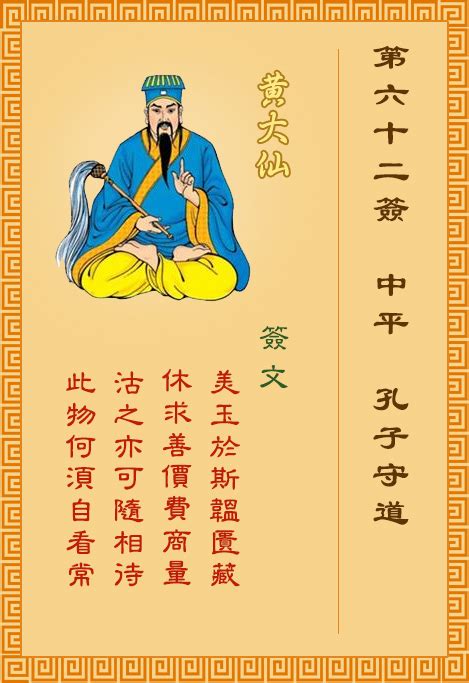 第六十二簽 中平 孔子守道
黃大仙
簽文
美玉於斯韞匵藏
休求善價費商量
沽之亦可隨相待
此物何須自看常